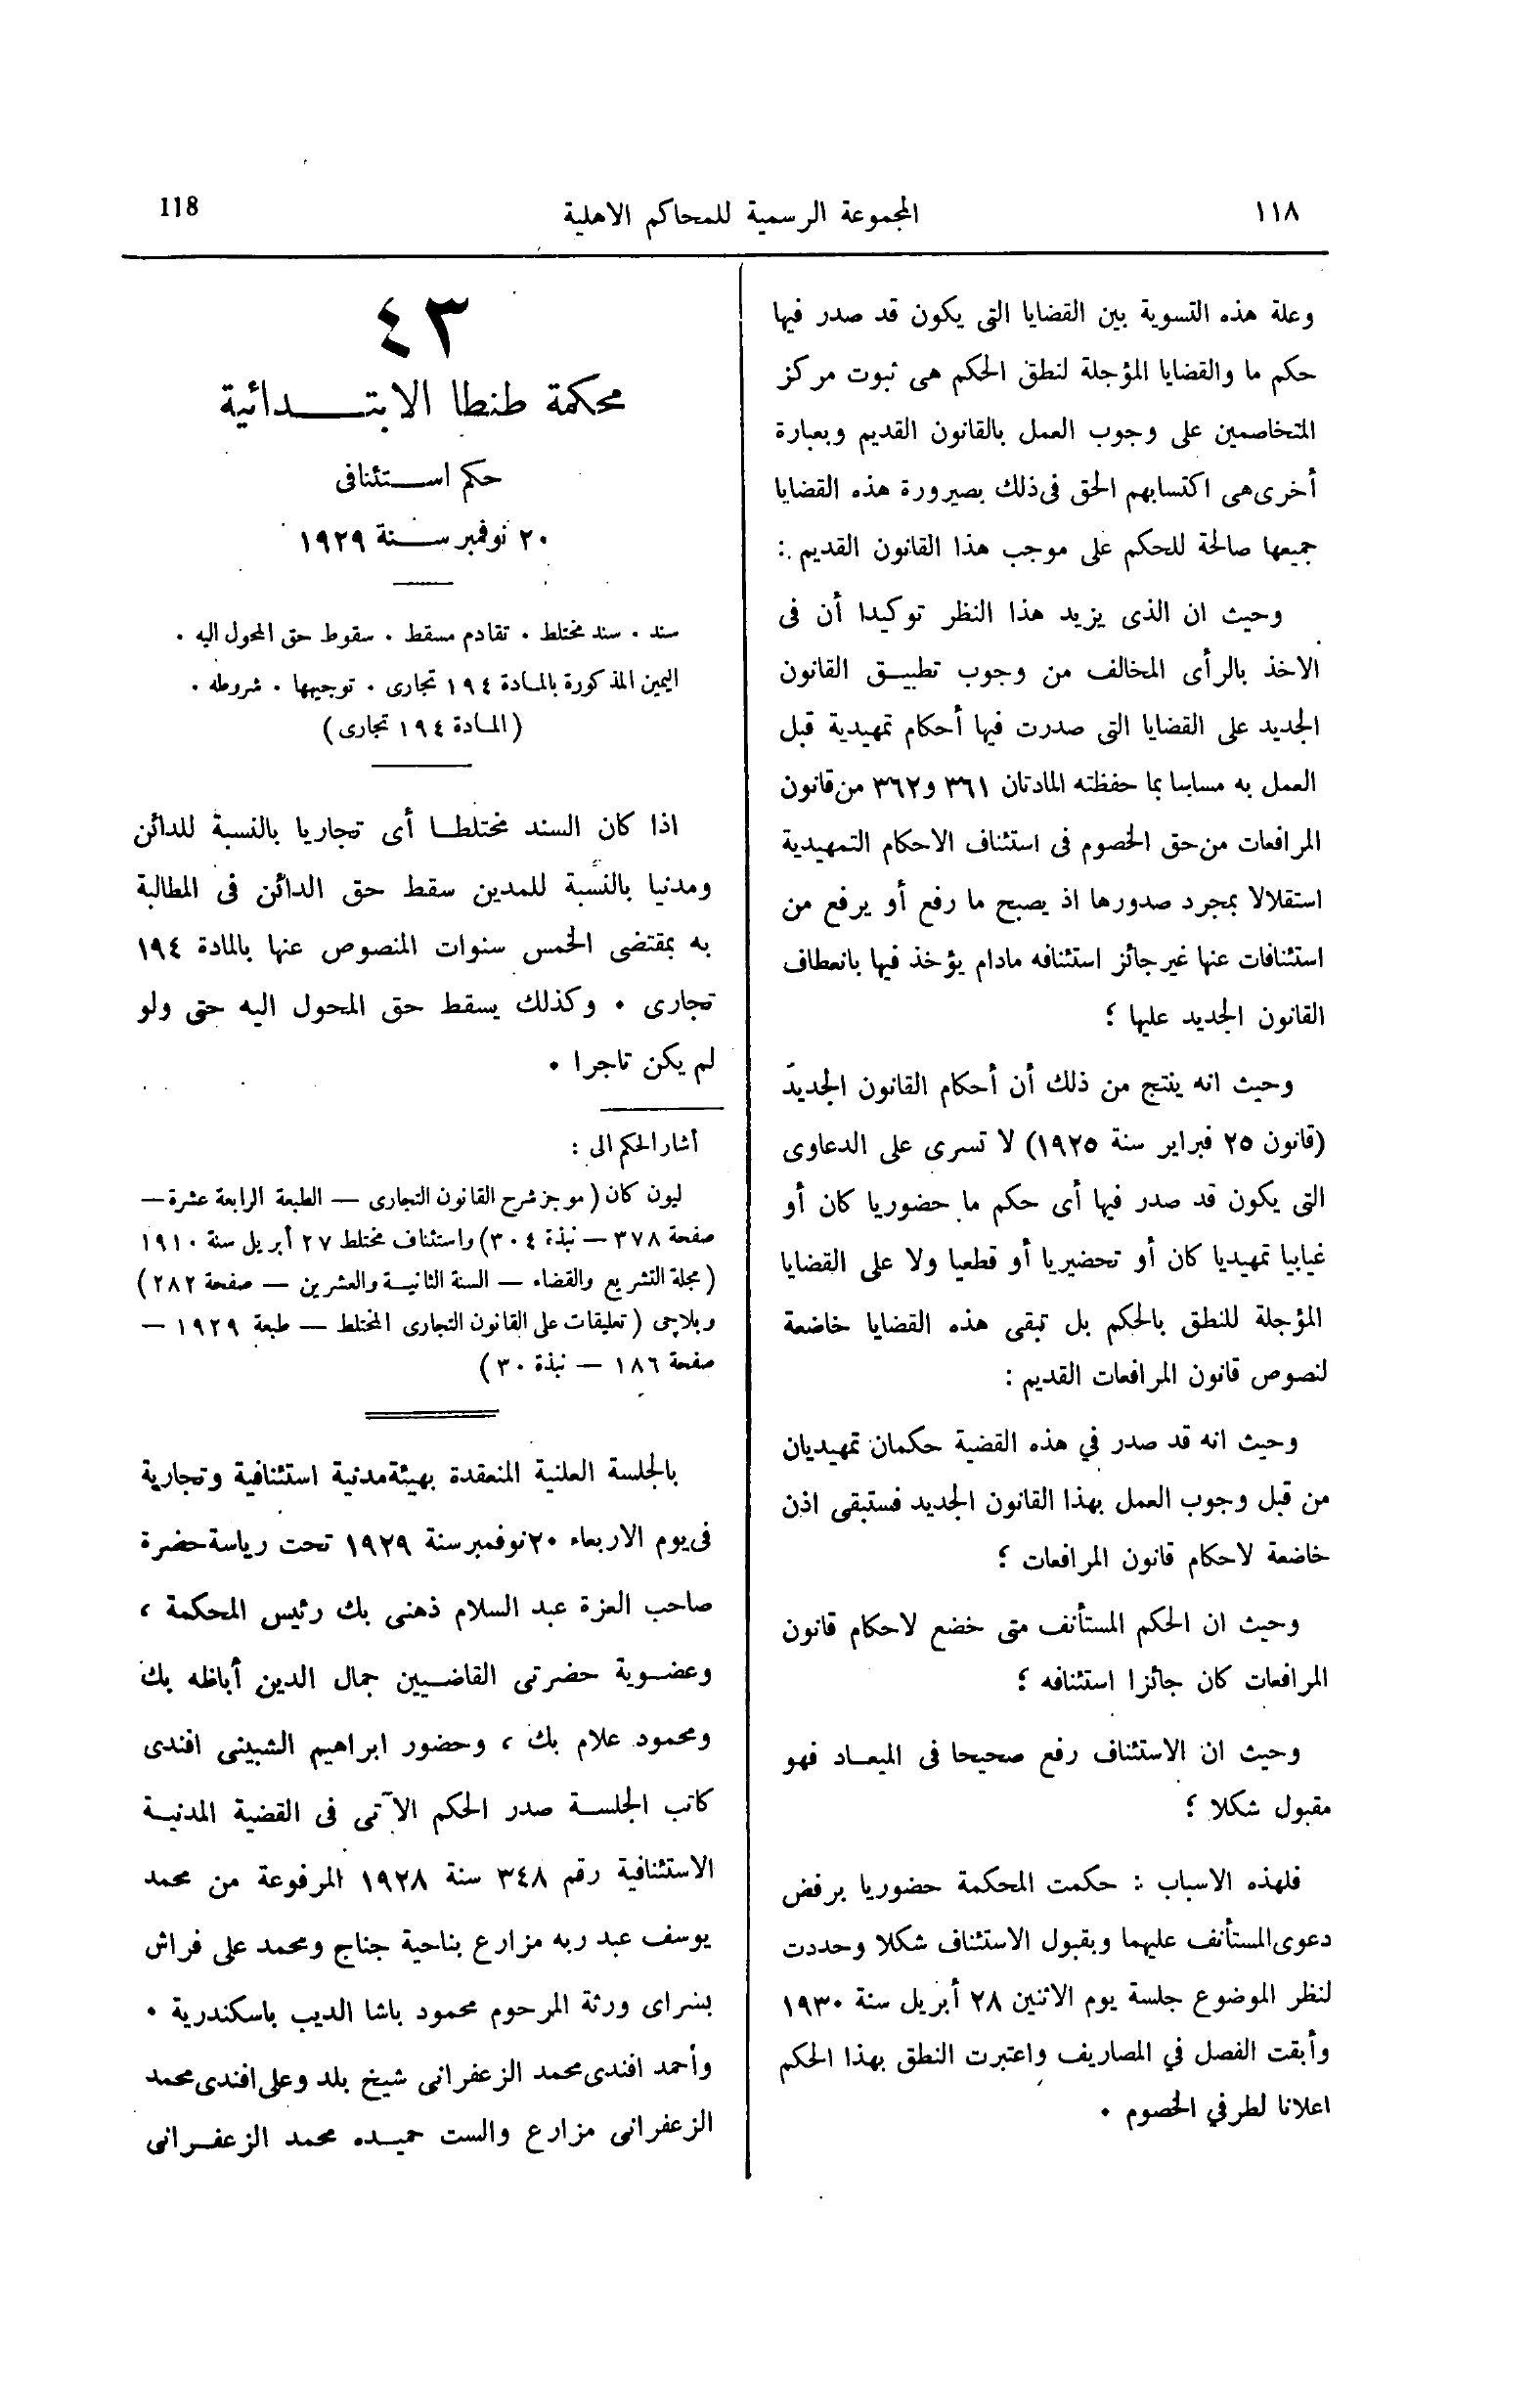 ١١٨
المجموعة الرسمية للمحاكم الاهلية
118
وعلة هذه التسوية بين القضايا التى يكون قد صدر فيها
حكم ما والقضايا المؤجلة لنطق الحكم هى ثبوت مركز
المتخاصمين على وجوب العمل بالقانون القديم وبعبارة
أخرى هى اكتسابهم الحق فى ذلك بصيرورة هذه القضايا
جميعها صالحة للحكم على موجب هذا القانون القديم :
وحيث ان الذى يزيد هذا النظر توكيدا أن فى
الاخذ بالرأى المخالف من وجوب تطبيق القانون
الجديد على القضايا التى صدرت فيها أحكام تمهيدية قبل
العمل به مساسا بما حفظته المادتان ٣٦١ و٣٦٢ من قانون
المرافعات من حق الخصوم فى استئناف الاحكام التمهيدية
استقلالا بمجرد صدورها اذ يصبح ما رفع أو يرفع من
استئنافات عنها غير جائز استئنافه مادام يؤخذ فيها بانعطاف
القانون الجديد عليها ؛
وحيث انه ينتج من ذلك أن أحكام القانون الجديد
(قانون ٢٥ فبراير سنة ١٩٢٥) لا تسرى على الدعاوى
التى يكون قد صدر فيها أى حكم ما حضوريا كان أو
غيابيا تمهيديا كان أو تحضيريا أو قطعيا ولا على القضايا
المؤجلة للنطق بالحكم بل تبقى هذه القضايا خاضعة
لنصوص قانون المرافعات القديم :
وحيث انه قد صدر في هذه القضية حكمان تمهيديان
من قبل وجوب العمل بهذا القانون الجديد فستبقى اذن
خاضعة لاحكام قانون المرافعات ؛
وحيث ان الحكم المستأنف متى خضع لاحكام قانون
المرافعات كان جائزا استئنافه ؛
وحيث ان الاستئناف رفع صحيحا فى الميعاد فهو
مقبول شكلا ؛
فلهذه الاسباب : حكمت المحكمة حضوريا برفض
دعوى المستأنف عليهما وبقبول الاستئناف شكلا وحددت
لنظر الموضوع جلسة يوم الاثنين ٢٨ أبريل سنة ١٩٣٠
وأبقت الفصل في المصاريف واعتبرت النطق بهذا الحكم
اعلانا لطرفي الخصوم ٠
٤٣
محكمة طنطا الابتدائية
حكم استئنافى
٢٠ نوفمبر سنة ١٩٢٩
سند ٠ سند مختلط ٠ تقادم مسقط ٠ سقوط حق المحول اليه ٠
اليمين المذكورة بالمادة ١٩٤ تجارى ٠ توجيهها ٠ شروطه ٠
(المادة ١٩٤ تجارى)
اذا كان السند مختلطا أى تجاريا بالنسبة للدائن
ومدنيا بالنسبة للمدين سقط حق الدائن فى المطالبة
به بمقتضى الخمس سنوات المنصوص عنها بالمادة ١٩٤
تجارى ٠ وكذلك يسقط حق المحول اليه حتى ولو
لم يكن تاجرا ٠
أشار الحكم الى :
ليون كان (موجز شرح القانون التجارى — الطبعة الرابعة عشرة —
صفحة ٣٧٨ — نبذة ٣٠٤) واستئناف مختلط ٢٧ أبريل سنة ١٩١٠
(مجلة التشريع والقضاء — السنة الثانية والعشرين — صفحة ٢٨٢)
وبلاچى (تعليقات على القانون التجارى المختلط — طبعة ١٩٢٩ —
صفحة ١٨٦ — نبذة ٣٠)
بالجلسة العلنية المنعقدة بهيئة مدنية استئنافية وتجارية
فى يوم الاربعاء ٢٠ نوفمبر سنة ١٩٢٩ تحت رياسة حضرة
صاحب العزة عبد السلام ذهنى بك رئيس المحكمة ،
وعضوية حضرتى القاضيين جمال الدين أباظه بك
ومحمود علام بك ، وحضور ابراهيم الشبينى افندى
كاتب الجلسة صدر الحكم الآتى فى القضية المدنية
الاستئنافية رقم ٣٤٨ سنة ١٩٢٨ المرفوعة من محمد
يوسف عبد ربه مزارع بناحية جناج ومحمد على فراش
بسراى ورثة المرحوم محمود باشا الديب باسكندرية ٠
وأحمد افندى محمد الزعفرانى شيخ بلد وعلى افندى محمد
الزعفرانى مزارع والست حميده محمد الزعفرانى